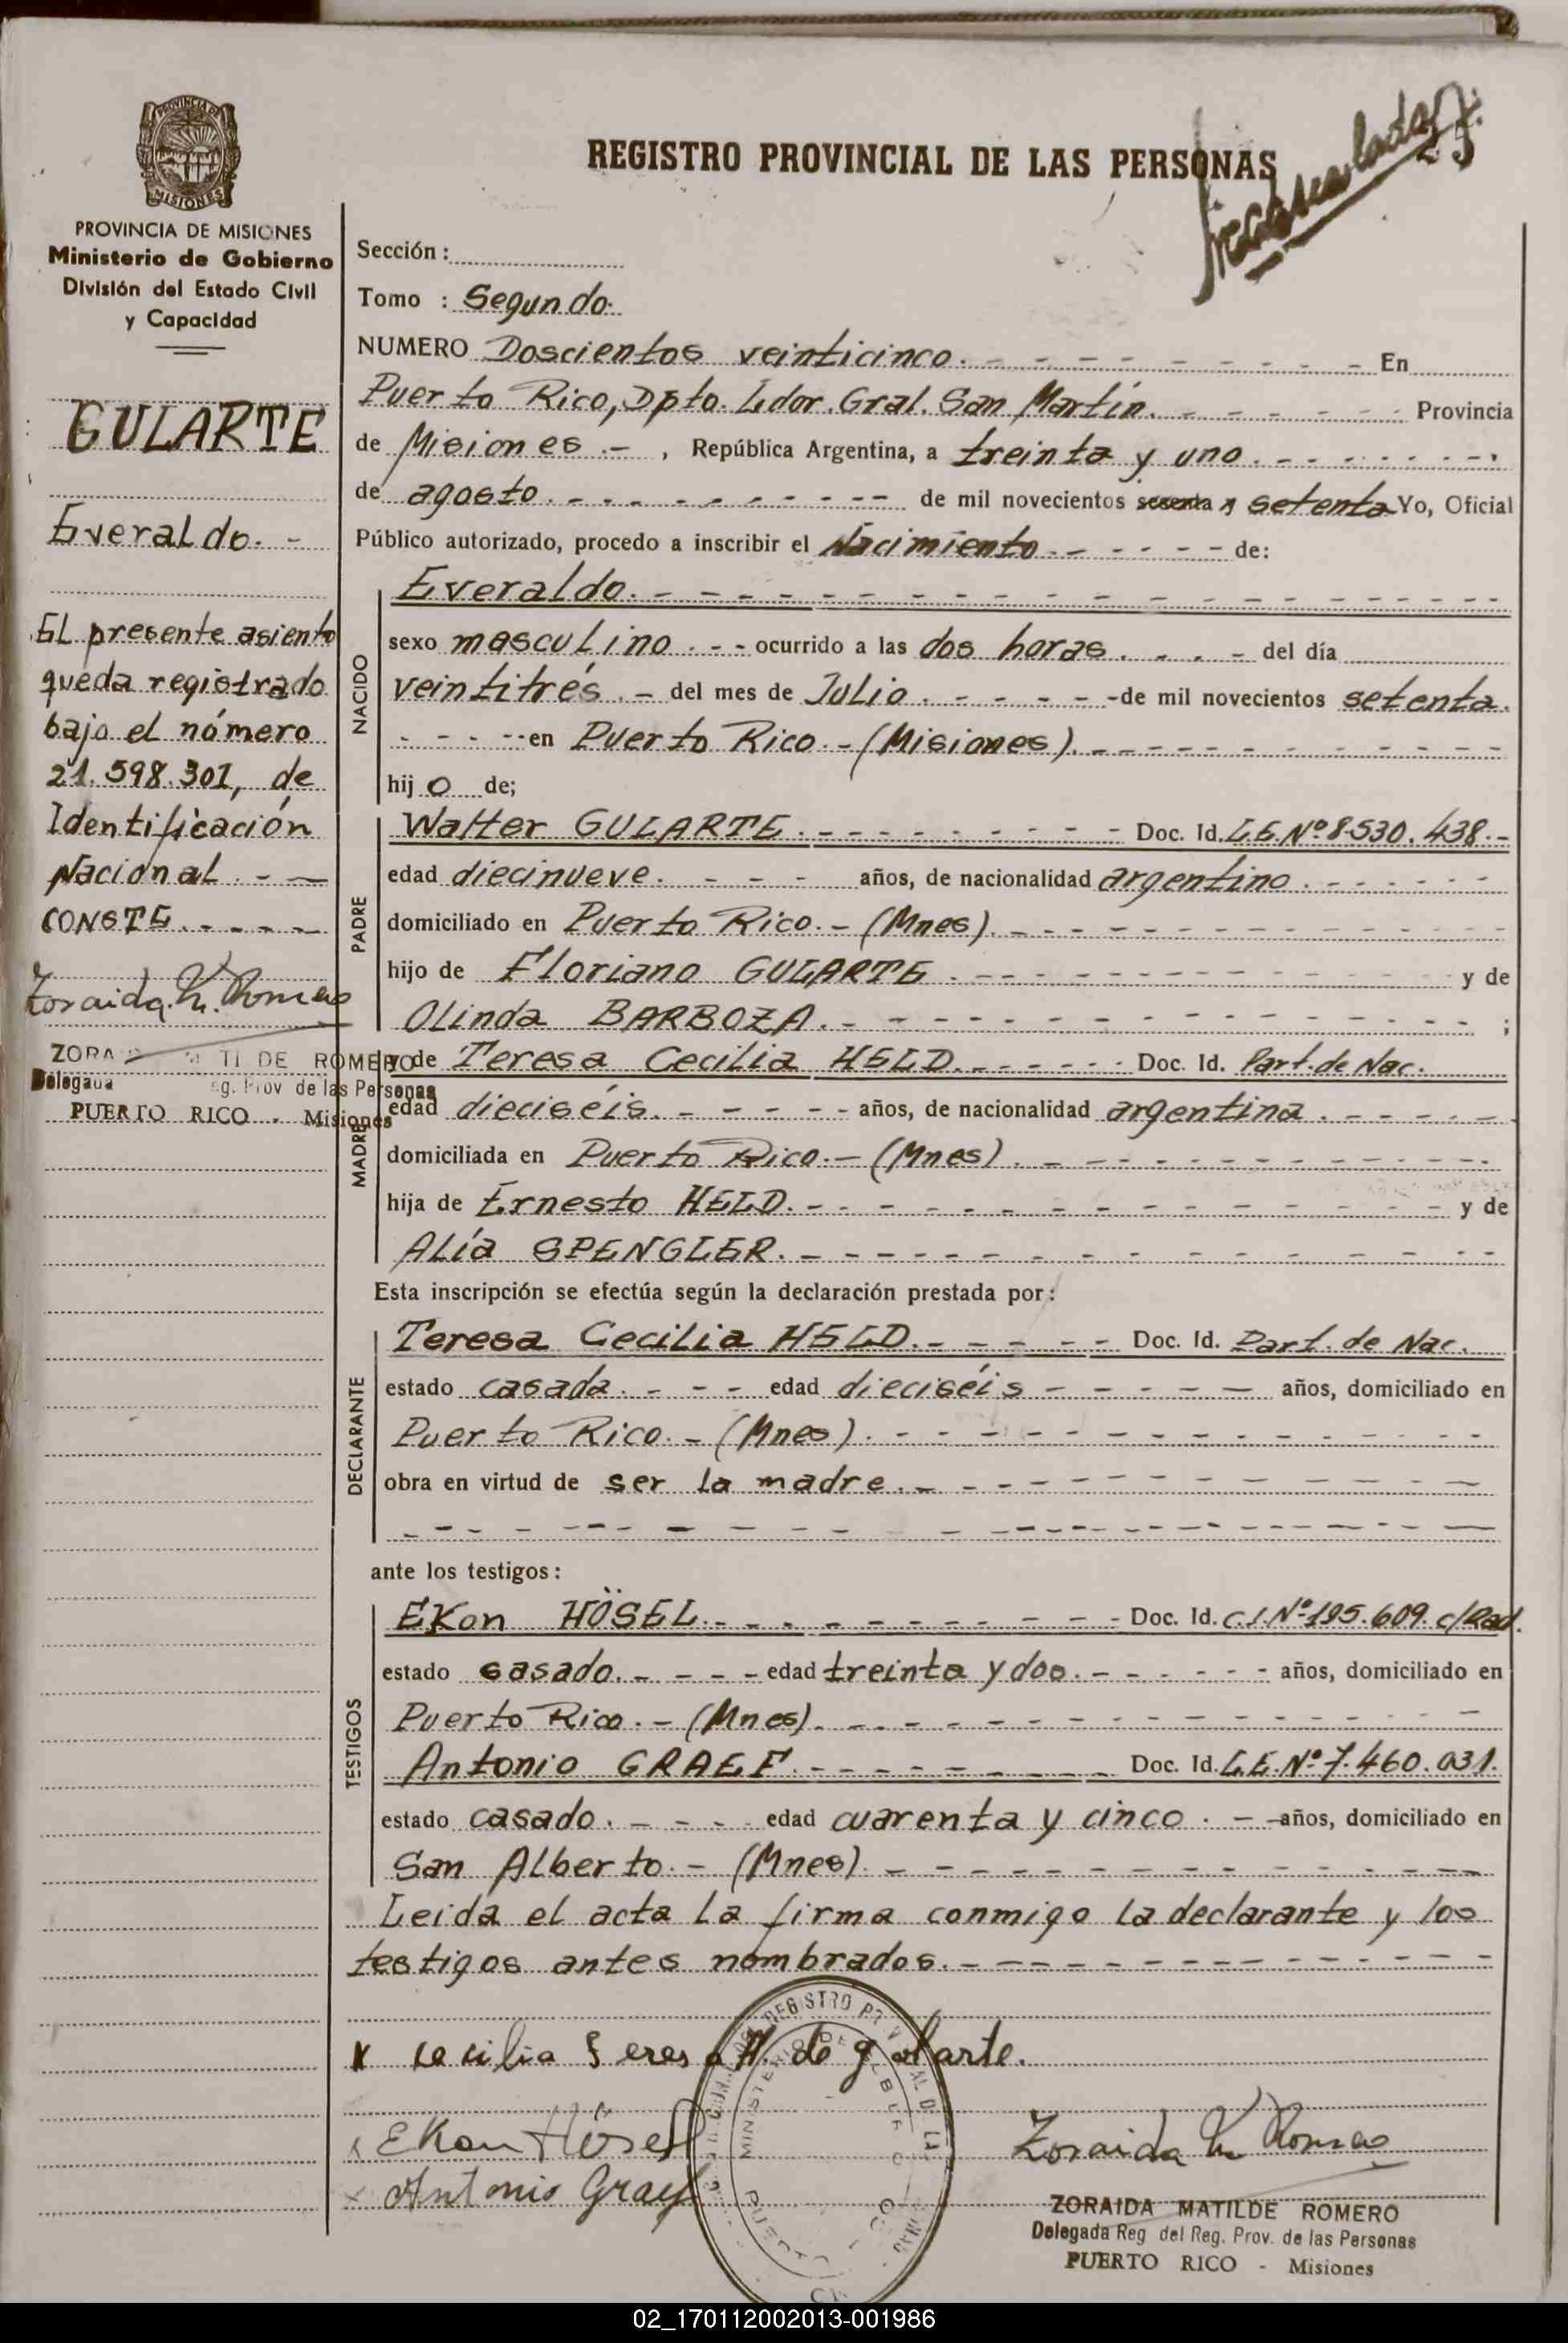 PROVINCIA DE
MISIONES
PROVINCIA DE MISIONES
Ministerio de Gobierno
División del Estado Civil
y Capacidad
GULARTE
Everaldo. -
EL presente asiento
queda registrado
bajo el número
21.598.301, de
Identificación
Nacional. - —
CONSTE. - - - -
Zoraida
ZORA TI DE ROMERO
Delegada eg. Prov de las Personas
PUERTO RICO - Misiones
REGISTRO PROVINCIAL DE LAS PERSONAS
Sección :
Tomo : Segundo.
NUMERO Doscientos veinticinco. - - - - - - - - - En
Puerto Rico, Dpto. Ldor. Gral. San Martín. - - - - - - Provincia
de Misiones. - , República Argentina, a treinta y uno. - - - - - - -
de agosto. - - - - - - - - - - de mil novecientos sesenta y setenta Yo, Oficial
Público autorizado, procedo a inscribir el Nacimiento. - - - - - de:
NACIDO
Everaldo. - - - - - - - - - - - - - - - -
sexo masculino. - - ocurrido a las dos horas. - - - del día
veintitrés. - del mes de Julio. - - - - - de mil novecientos setenta.
- - - - - en Puerto Rico. - (Misiones). - - - - - - - - - -
hij o de;
PADRE
Walter GULARTE. - - - - - - - - Doc. Id. L.E. Nº 8.530.438. -
edad diecinueve. - - - - años, de nacionalidad argentino. - - - - - -
domiciliado en Puerto Rico. - (Mnes). - - - - - - - - - - -
hijo de Floriano GULARTE. - - - - - - - - - - y de
OLinda BARBOZA. - - - - - - - - - - - - - ;
MADRE
y de Teresa Cecilia HELD. - - - - - Doc. Id. Part. de Nac.
edad dieciséis. - - - - - años, de nacionalidad argentina. - - - - -
domiciliada en Puerto Rico. - (Mnes). - - - - - - - - - -
hija de Ernesto HELD. - - - - - - - - - - - - y de
ALía SPENGLER. - - - - - - - - - - - - - -
Esta inscripción se efectúa según la declaración prestada por:
DECLARANTE
Teresa Cecilia HELD. - - - - - Doc. Id. Part. de Nac.
estado casada. - - - edad dieciséis - - - - - años, domiciliado en
Puerto Rico. - (Mnes). - - - - - - - - - - - - -
obra en virtud de ser la madre. - - - - - - - - - -
- - - - - - - - - - - - - - - - - -
ante los testigos:
TESTIGOS
Ekon HÖSEL. - - - - - - - - - - Doc. Id. C.I. Nº 195.609. c/Rad.
estado casado. - - - - edad treinta y dos. - - - - - - años, domiciliado en
Puerto Rico. - (Mnes). - - - - - - - - - - - - -
Antonio GRAEF. - - - - - - - - Doc. Id. L.E. Nº 7.460.031.
estado casado. - - - - edad cuarenta y cinco. - - años, domiciliado en
San Alberto. - (Mnes). - - - - - - - - - - - -
Leída el acta la firma conmigo la declarante y los
testigos antes nombrados. - - - - - - - - - - - -
x cecilia Teresa H. de gularte.
x Ekon Hösel
x Antonio Graef
Zoraida
ZORAIDA MATILDE ROMERO
Delegada Reg del Reg. Prov. de las Personas
PUERTO RICO - Misiones
02_170112002013-001986